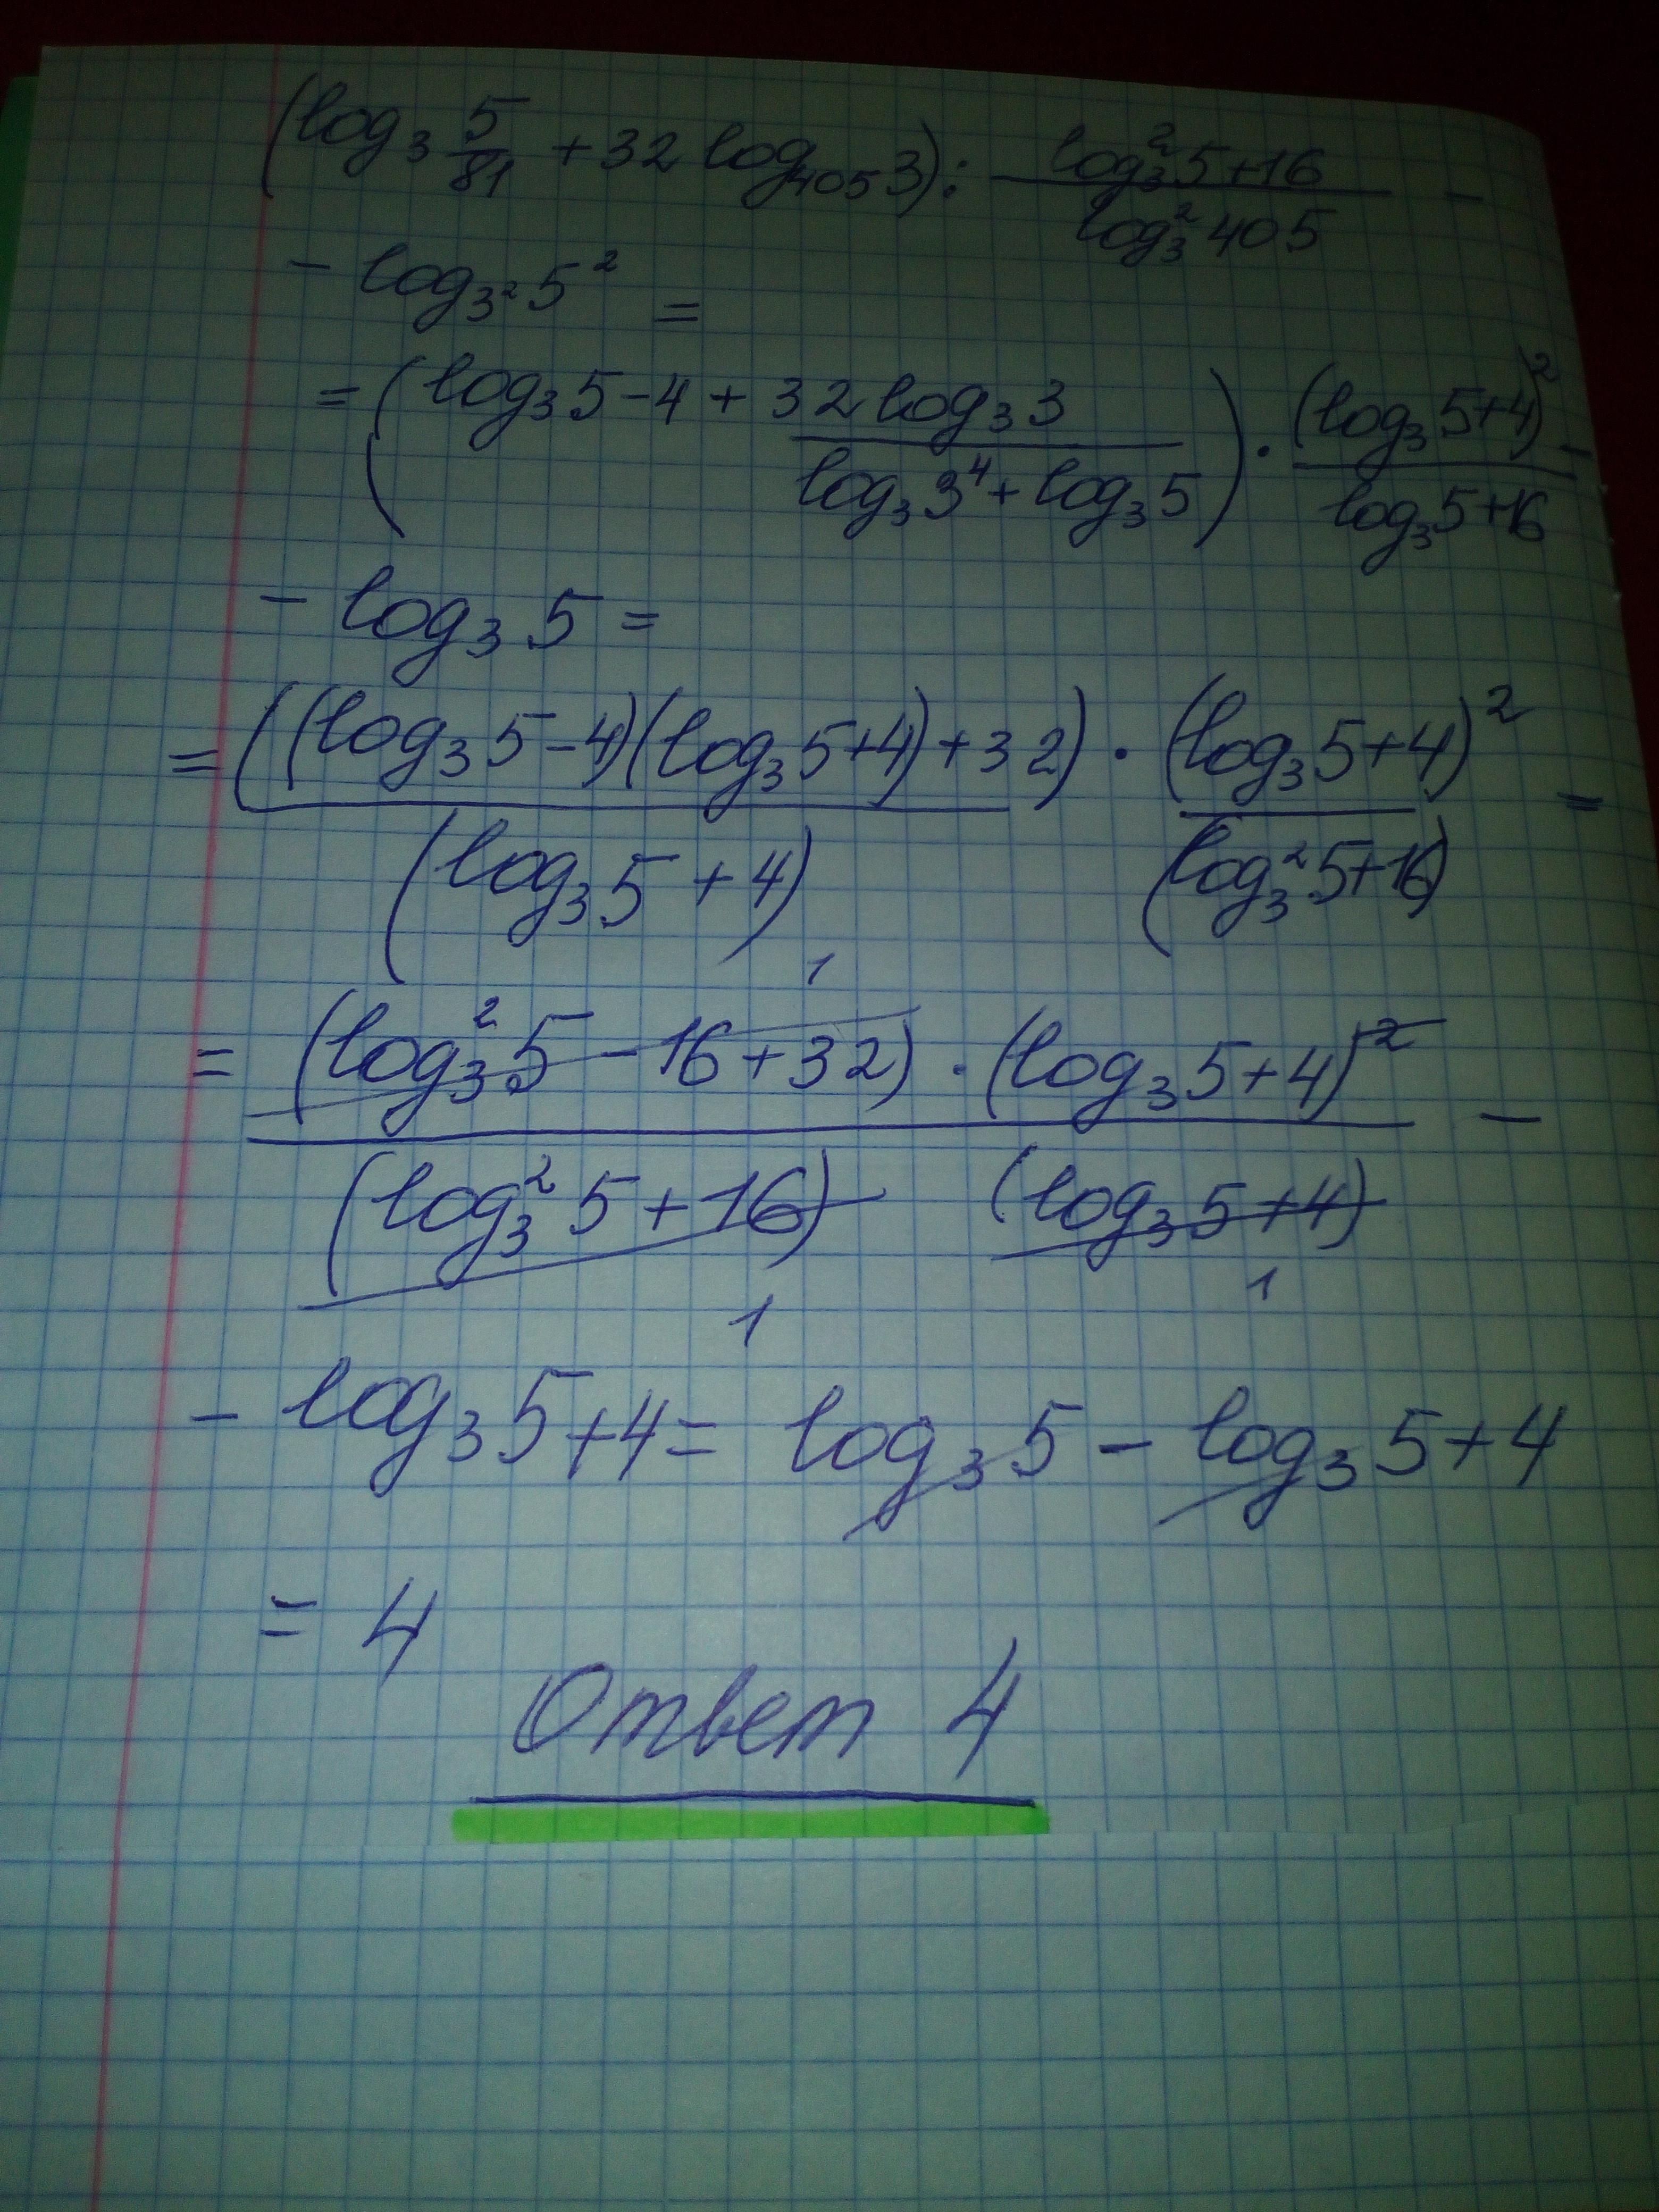 (log₃ 5/81 + 32 log₄₀₅ 3) : (log₃² 5+16)/(log₃² 405) −
− log₃² 5² =
= (log₃ 5 − 4 + (32 log₃ 3)/(log₃ 3⁴ + log₃ 5)) · (log₃ 5+4)²/(log₃ 5+16) −
− log₃ 5 =
= ((log₃ 5−4)(log₃ 5+4)+32)/(log₃ 5 + 4) · (log₃ 5+4)²/(log₃² 5+16) =
1
= (log₃² 5 − 16 + 32) · (log₃ 5+4)² / (log₃² 5 + 16) (log₃ 5+4) −
1 1
− log₃ 5+4 = log₃ 5 − log₃ 5 + 4
= 4
Ответ 4